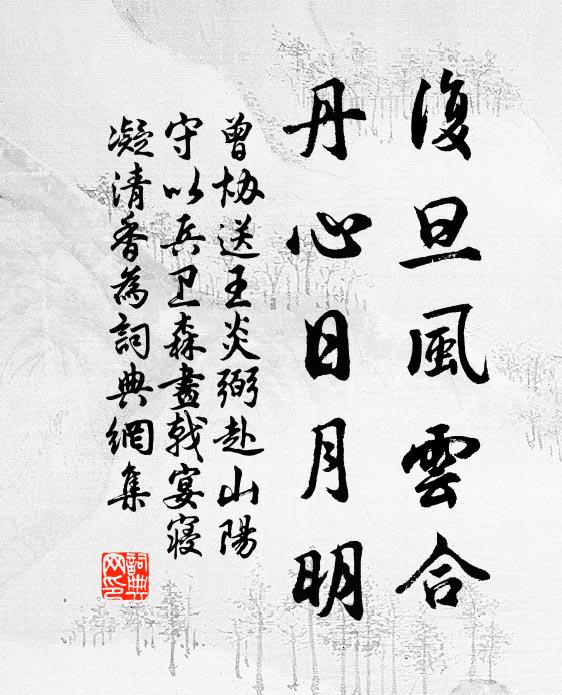 復旦風雲合
丹心日月明
曾协送王炎弼赴山陽
守以兵卫森畫戟宴寝
凝清香為詞典網集
詞典网印